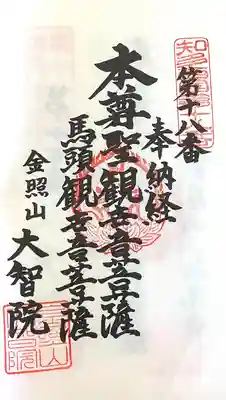 第十八番
奉納経
本尊聖観世音菩薩
馬頭観世音菩薩
金照山
大智院